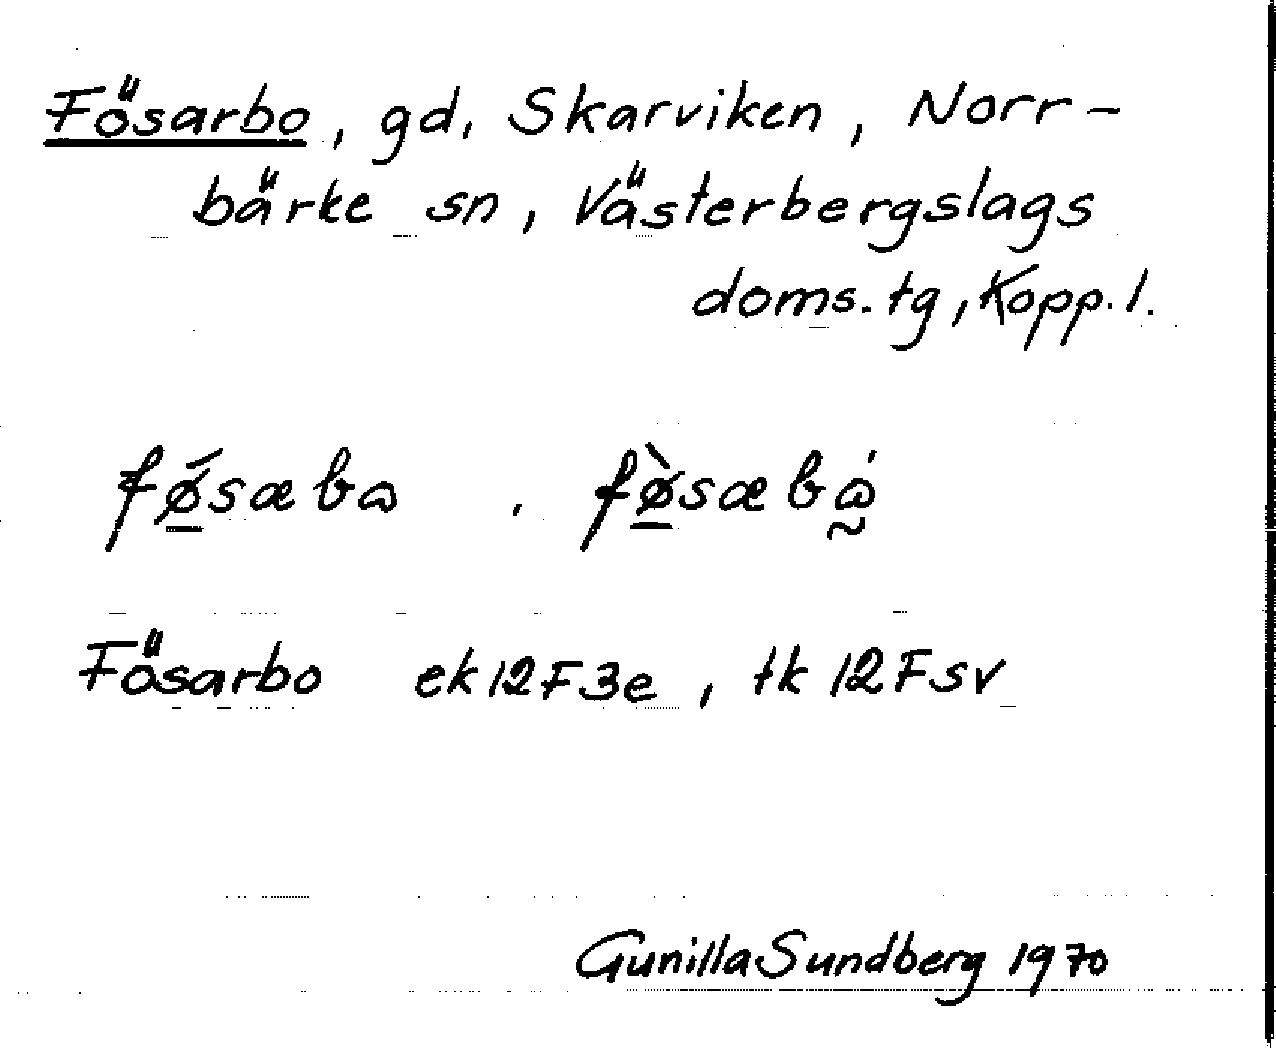 Fösarbo, gd, Skarviken, Norr-
bärke sn, Västerbergslags
doms. tg, Kopp. l.
fǿ̲sæbɷ , fø̲̀sæbɷ̰́
Fösarbo ek 12F3e, tk 12Fsv
Gunilla Sundberg 1970